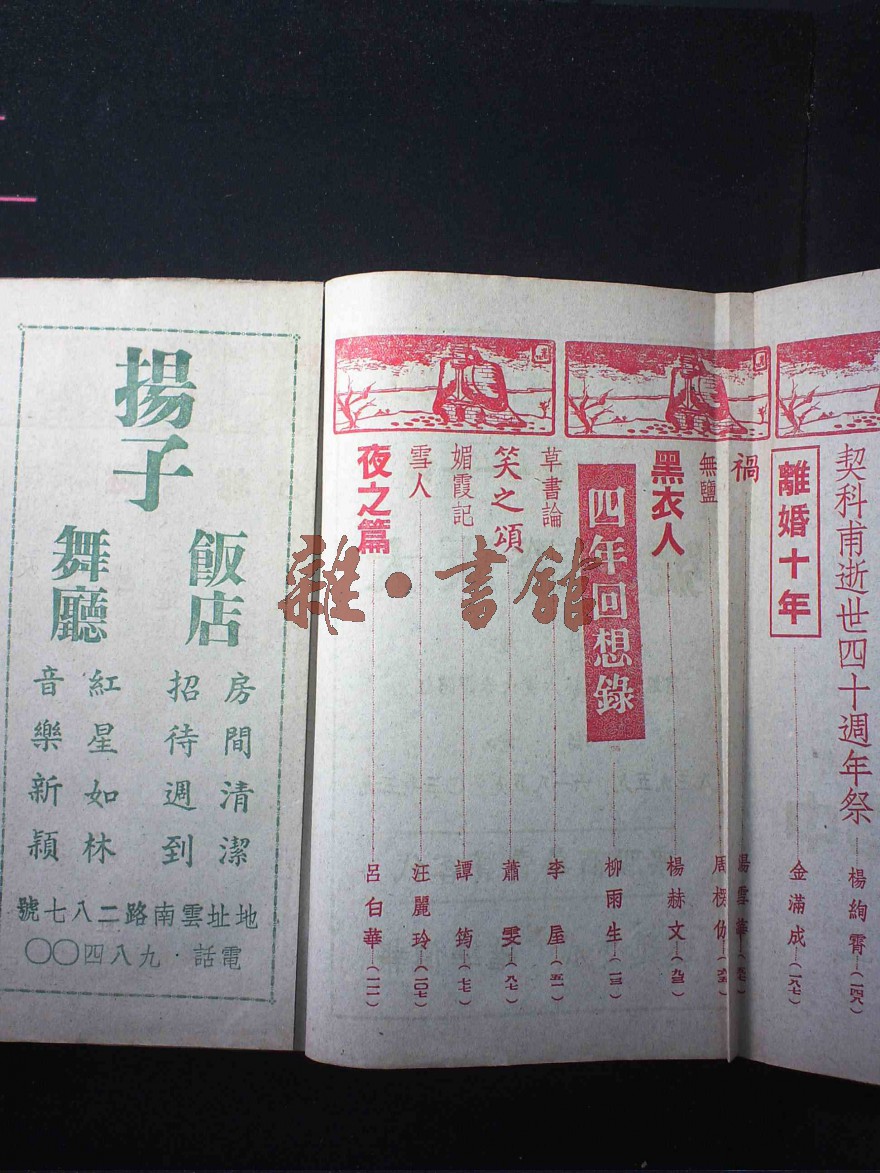 契科甫逝世四十週年祭 楊絢霄(一四八)
離婚十年 金滿成(一八七)
禍 湯雪華
無鹽 周楞伽
黑衣人 楊赫文(九三)
四年回想錄 柳雨生(一三)
草書論 李屋(五一)
笑之頌 蕭雯(九七)
媚霞記 譚筠(七七)
雪人 汪麗玲(一〇七)
夜之篇 呂白華(一一一)
揚子
飯店
房間清潔
招待週到
舞廳
紅星如林
音樂新穎
地址雲南路二八七號
電話·九八四〇〇
雜·書館